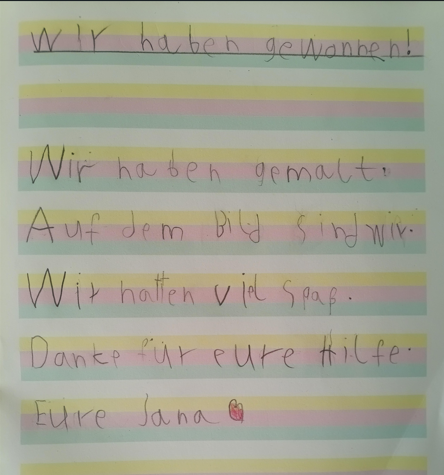 Wir haben gewonnen!
Wir haben gemalt.
Auf dem Bild sind wir.
Wir hatten viel Spaß.
Danke für eure Hilfe.
Eure Jana